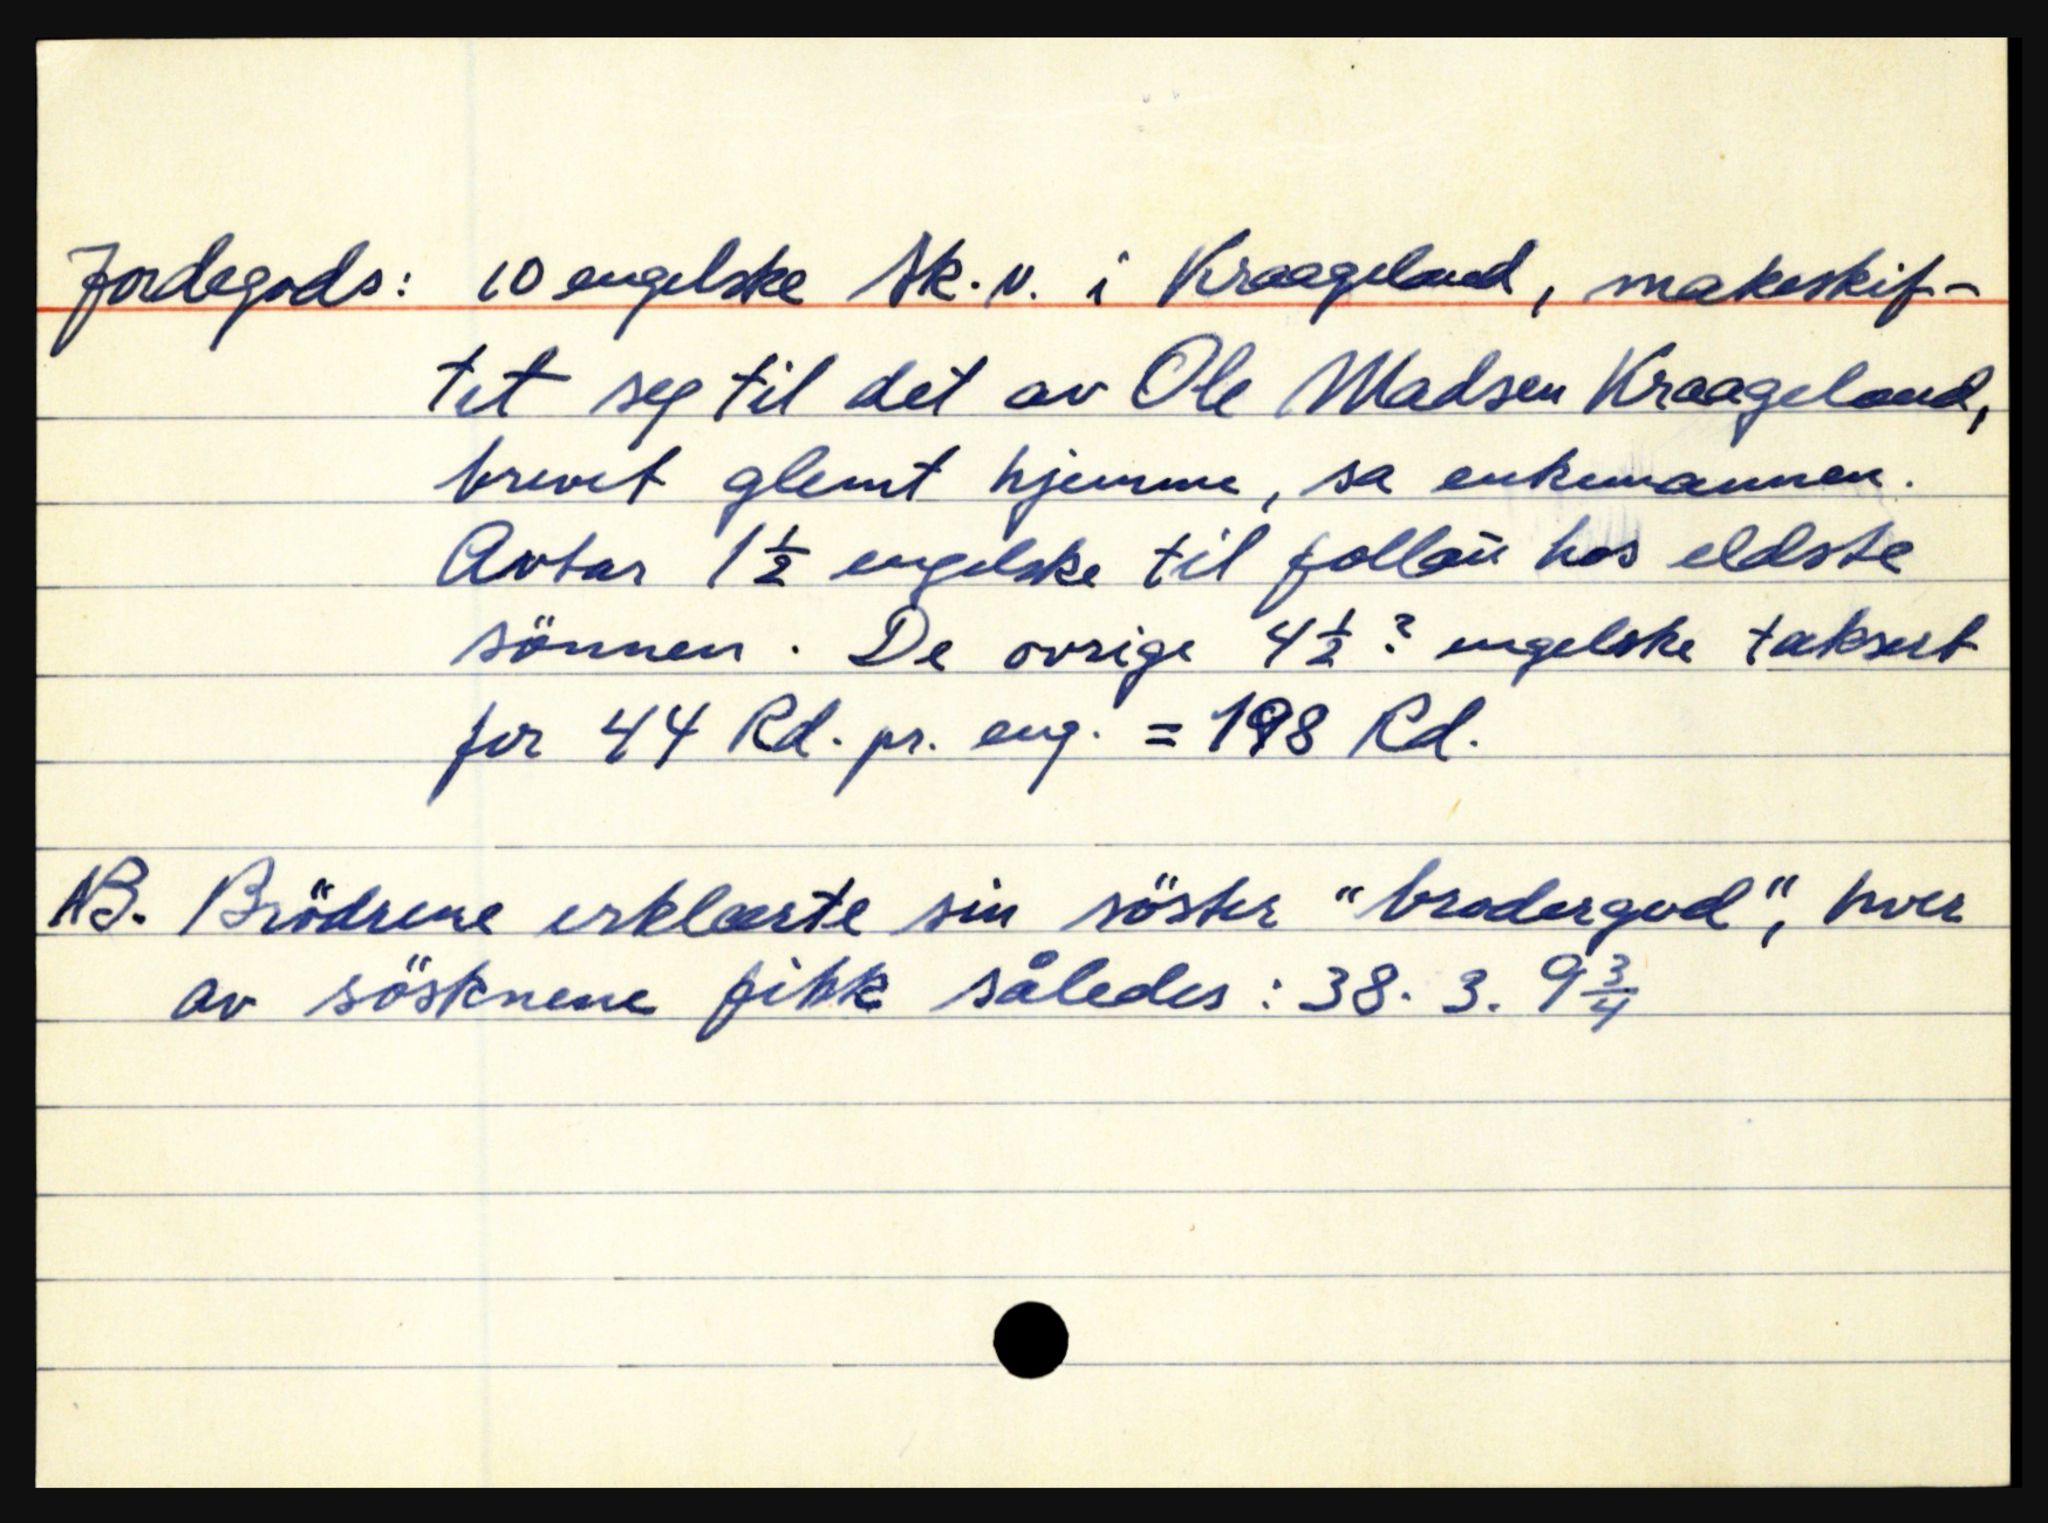 Jordegods: 10 engelske Sk. v. i Kraageland, makeskif-
tet seg til det av Ole Madsen Kraageland,
brevet glemt hjemme, sa enkemannen.
Avtar 1 ½ engelske til follaü hos eldste
sönnen. De ovrige 4 ½ ? engelske taksert
for 44 Rd. pr. eng. = 198 Rd.
NB. Brödrene erklærte sin söster "brodergod", hver
av sösknene fikk således: 38. 3. 9 ¾